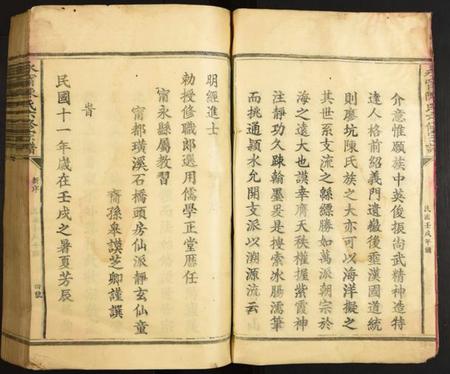 介意惟願族中英俊振尚武精神造特
達人格前紹義門遺徽後垂漢國道統
則廖坑陳氏族之大亦可以海洋擬之
其世系支流之緜縹勝如萬派朝宗於
海之遠大也謨幸膺天秩權握紫霞神
注靜功久踈翰墨爰是搜索冰腸濡筆
而挑通潁水允開文派以溯源流云
明經進士
勅授修職郎選用儒學正堂歷任
甯永縣屬教習
甯都璜溪石橋頭房仙派靜玄仙童
裔孫皋謨芝卿謹撰
旹
民國十一年歲在壬戌之暑夏芳辰
新序
四號
民國壬戌年鐫